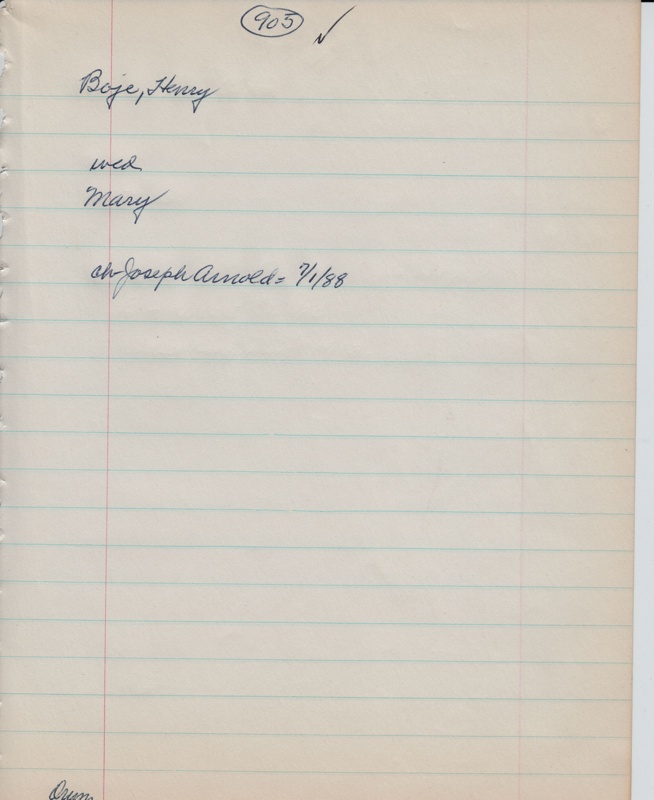 903 ✓
Boje, Henry
wed
Mary
ch-Joseph Arnold = 7/1/88